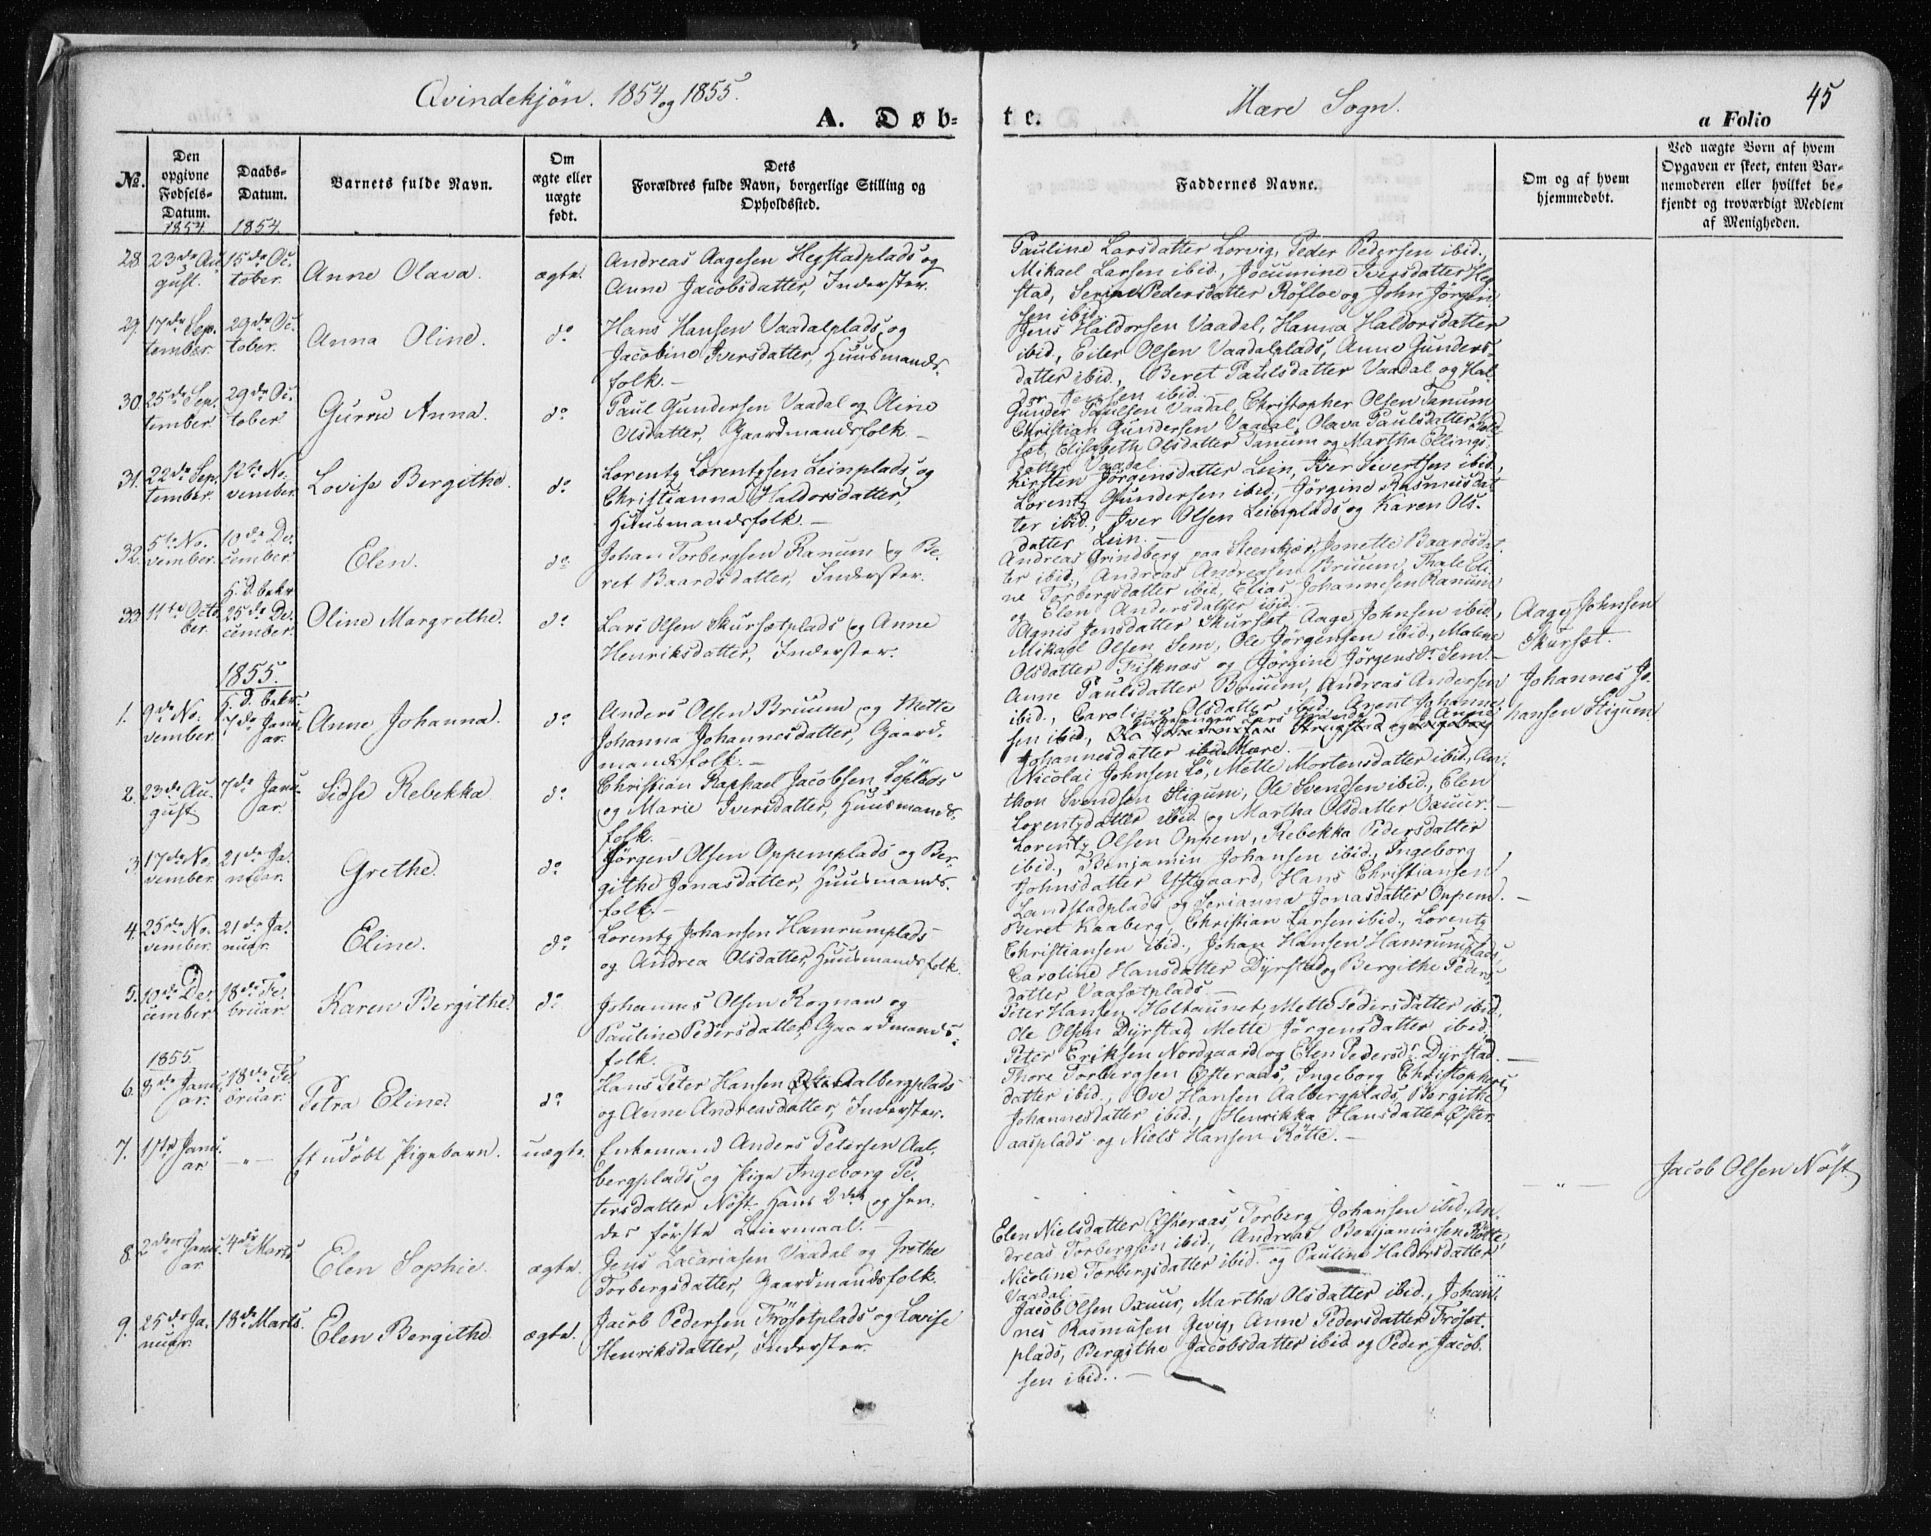 Qvindekjön. 1854 og 1855.
Mære Sogn.
45
A. Døb-
te.
a Folio
No.
Den opgivne Fødsels-Datum.
Daabs-Datum.
Barnets fulde Navn.
Om ægte eller uægte født.
Dets Forældres fulde Navn, borgerlige Stilling og Opholdssted.
Faddernes Navne.
Om og af hvem hjemmedøbt.
Ved uægte Børn af hvem Opgaven er skeet, enten Barnemoderen eller hvilket bekjendt og troværdigt Medlem af Menigheden.
1854 1854
28. 23de August. 15de October. Anne Olava. ægte.
Andreas Aagesen Hegstadplads og
Anne Jacobsdatter, Inderster.
Pauline Larsdatter Lorvig, Peder Pedersen ibid.,
Mikael Larsen ibid., Jocumine Iversdatter Heg
stad, Serine Pedersdatter Röfloe og John Jörgen
sen ibid.
29. 17de September. 29de October. Anna Oline. do
Hans Hansen Vaadalplads og
Jacobine Iversdatter, Huusmands-
folk. —
Jens Haldorsen Vaadal, Hanna Haldorsdatter
ibid., Eiler Olsen Vaadalplads, Anne Gunders-
datter ibid., Beret Paulsdatter Vaadal og Hal-
dor Jensen ibid. —
30. 25de September 29de October Gurru Anna. do
Paul Gundersen Vaadal og Oline
Olsdatter, Gaardmandsfolk —
Gunder Paulsen Vaadal, Christopher Olsen Tanum
Christian Gundersen Vaadal, Olava Paulsdatter
set, Elisabeth Olsdatter Tanum og Martha Ellings-
datter Vaadal.
31. 22de September. 12te November. Lovise Bergithe. do
Lorentz Lorentzsen Leinplads og
Christianna Haldorsdatter,
Huusmandsfolk. —
Kirsten Jörgensdatter Lein, Iver Sivertsen ibid.,
Lorentz Gundersen ibid., Jörgine Rasmusdat
ter ibid., Iver Olsen Leinplads og Karen Ols-
datter Lein. —
32. 5te November. 10de December. Elen. do
Johan Torbergsen Ranum og Be-
ret Baardsdatter, Inderster.
Andreas Grindberg paa Steenkjær, Jonette Baardsdat-
ter ibid., Andreas Andreasen Bruum, Thale Eli-
ne Torbergsdatter ibid, Elias Johannesen Ranum
og Elen Andersdatter ibid.
H. D. bekr.
33. 11te October. 25de December. Oline Margrethe. do
Lars Olsen Skursætplads og Anne
Henriksdatter, Inderster.
Agnis Jensdatter Skursæt, Aage Johnsen ibid.,
Mikael Olsen Sem, Ole Jörgensen ibid., Malene
Olsdatter Fisknæs og Jörgine Jörgensdr Sem. —
Aage Johnsen
Skursæt.
1855.
H. D. bekr.
1. 9de November 7de Januar. Anne Johanna. do
Anders Olsen Bruum og Mette
Johanna Johannesdatter, Gaard-
mandsfolk. —
Anne Paulsdatter Bruum, Andreas Andersen
ibid., Caroline Olsdatter ibid., Arent Johanne
sen ibid,
Johannesdatter ibid. Mære.
Johannes Jo-
hansen Stigum
2. 23de August 7de Januar. Sidse Rebekka do
Christian Raphael Jacobsen Löplads
og Marie Iversdatter, Huusmands-
folk. —
Nicolai Johnsen Lö, Mette Mortensdatter ibid., An-
thon Svendsen Stigum, Ole Svendsen ibid., Elen
Lorentzdatter ibid og Martha Olsdatter Oxuur. —
3. 17de November. 21de Januar. Grethe. do
Jörgen Olsen Oppemplads og Ber-
githe Jonasdatter, Huusmands-
folk. —
Lorentz Olsen Oppem, Rebekka Pedersdatter
ibid., Benjamin Johansen ibid., Ingeborg
Johnsdatter Ystgaard, Hans Christiansen
Landstadplads og Serianna Jonasdatter Oppem. —
4. 25de November. 21de Januar. Eline. do
Lorentz Johansen Hamrumplads
og Andrea Olsdatter, Huusmandsfolk.
Beret Kaaberg, Christian Larsen ibid., Lorentz
Christiansen ibid., Johan Hansen Hamrumplads,
Caroline Hansdatter Dyrstad og Bergithe Peders-
datter Vaasætplads. —
5. 10de December 18de Februar. Karen Bergithe. do
Johannes Olsen Rognan og
Pauline Pedersdatter, Gaardmands-
folk.
Peter Hansen Holtaunet, Mette Pedersdatter ibid.
Ole Olsen Dyrstad, Mette Jörgensdatter ibid.
Peter Eriksen Nordgaard og Elen Pedersdr Dyrstad. —
1855.
6. 8de Januar. 18de Februar. Petra Eline. do
Hans Peter Hansen Aalbergplads
og Anne Andreasdatter, Inderster.
Thore Torbergsen Österaas, Ingeborg Christophers
datter ibid., Ove Hansen Aalbergplads, Bergithe
Johannesdatter ibid., Henrikka Hansdatter Öster
aasplads og Niels Hansen Rötte. —
7. 17de Januar — " — Et udöbt Pigebarn. uægte.
Enkemand Anders Petersen Aal-
bergplads og Pige Ingeborg Pe-
tersdatter Nöst. Hans 2det og hen-
des förste Leiermaal. —
— " —
Jacob Olsen Nöst.
8. 2den Januar 4de Marts Elen Sophie. ægte.
Jens Zacariasen Vaadal og Grethe
Torbergsdatter, Gaardmandsfolk.
Elen Nielsdatter Österaas, Torberg Johansen ibid., An-
dreas Torbergsen ibid., Andreas Benjaminsen Rötte,
Nicoline Torbergsdatter ibid. og Pauline Haldorsdatter
Vaadal.
9. 25de Januar. 18de Marts. Elen Bergithe ægte.
Jacob Pedersen Frösetplads og Lovise
Henriksdatter, Inderster.
Jacob Olsen Oxuur, Martha Olsdatter ibid., Johan-
nes Rasmusen Gevig, Anne Pedersdatter Fröset-
plads, Bergithe Jacobsdatter ibid og Peder Jacob-
sen ibid. —